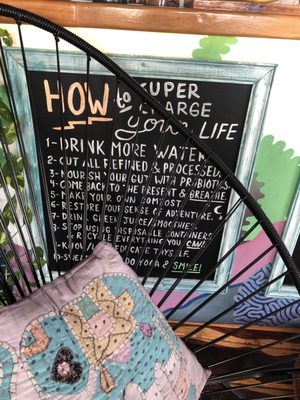 HOW to SUPER
CHARGE
your LIFE
1- DRINK MORE WATER
2- CUT ALL REFINED & PROCESSED.
3- NOURISH YOUR GUT WITH PROBIOTICS
4- COME BACK TO THE PRESENT & BREATHE
5- MAKE YOUR OWN COMPOST.
6- RESTORE YOUR SENSE OF ADVENTURE.
7- DRINK GREEN JUICES/SMOOTHIES.
STOP USING DISPOSABLE CONTAINERS
& RECYCLE EVERYTHING YOU CAN!
& EDUCATE THYSELF.
DO YOGA & SMILE!